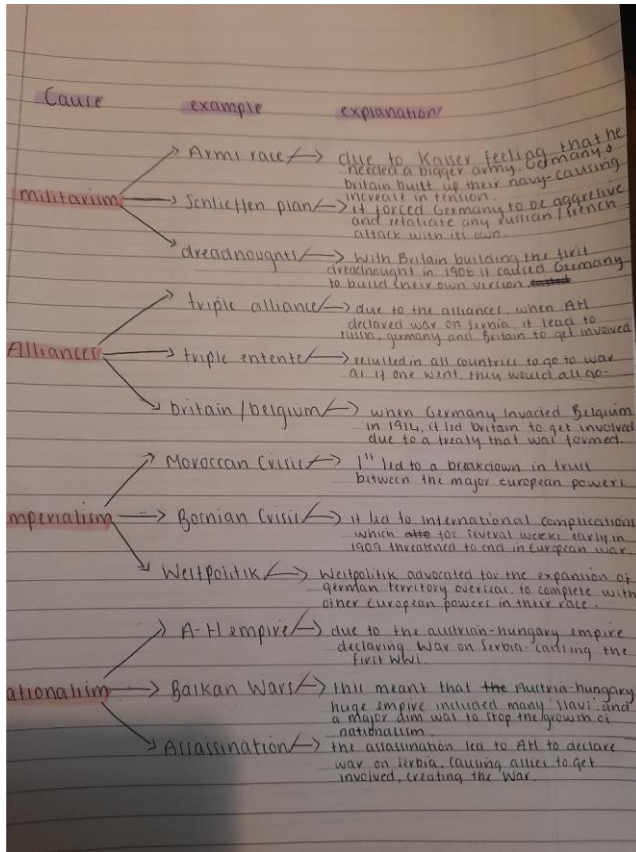 Cause example explanation
Arms race due to Kaiser feeling that he
needed a bigger army. Germany &
britain built up their navy-causing
increase in tension.
militarism Schlieffen plan it forced Germany to be aggresive
and retaliate any russian / french
attack with its own.
dreadnoughts With Britain building the first
dreadnought in 1906 it caused Germany
to build their own version
triple alliance due to the alliances, when AH
declared war on Serbia, it lead to
russia, germany and Britain to get involved
Alliances triple entente resulted in all countries to go to war
as if one went, they would all go.
britain / belgium when Germany invaded Belgium
in 1914, it led britain to get involved
due to a treaty that was formed.
Moroccan Crisis 1st led to a breakdown in trust
between the major european powers
mperialism Bosnian Crisis it led to international complications
which for several weeks early in
1909 threatened to end in European war.
Weltpolitik Weltpolitik advocated for the expansion of
german territory overseas, to complete with
other European powers in their race.
A-H empire due to the austrian-hungary empire
declaring war on Serbia- causing the
first WW1.
ationalism Balkan Wars this meant that the Austria-hungary
huge empire included many 'slavs' and
a major aim was to stop the growth of
nationalism.
Assassination the assassination led to AH to declare
war on serbia, causing allies to get
involved, creating the War.